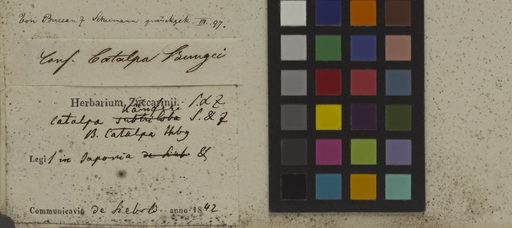 Von Bureau & Schumann zurückgek. III. 97.
Conf. Catalpa Bungei
Herbarium Zuccarinii.
Kaempferi S. & Z
Catalpa subtriloba S. & Z
B. Catalpa Hbg
Legi in Japonia de Sieb
Communicavit de Siebold anno 1842